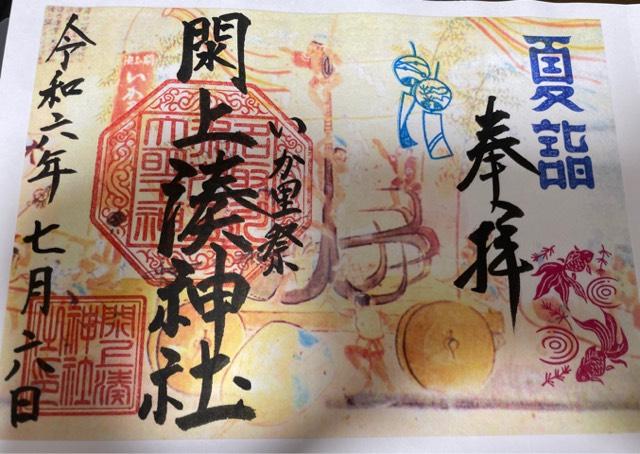 夏詣
奉拝
いか里祭
閖上湊神社
令和六年七月六日
閖上湊
神社